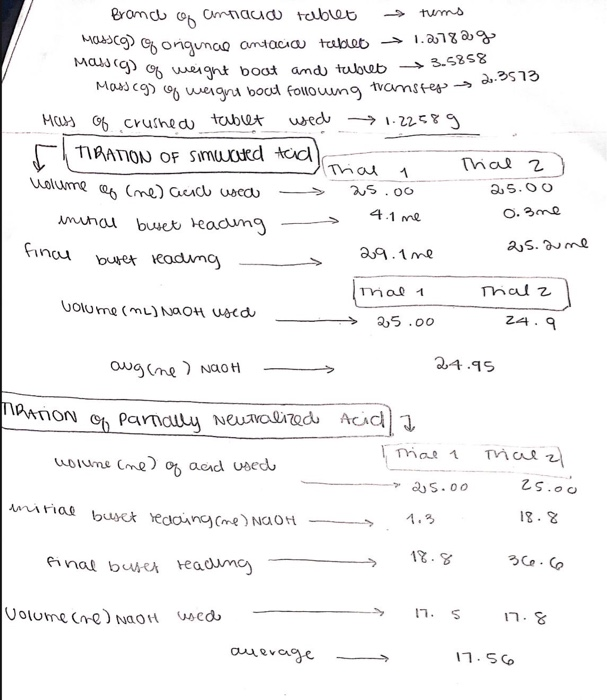 Brand of antacid tablet → tums
Mass(g) of original antacid tablet → 1.2782g
Mass(g) of weight boat and tablet → 3.5858
Mass(g) of weight boat following transfer → 2.3573
Mass of crushed tablet used → 1.2258 g
TIRATION OF Simulated Acid Trial 1 Trial 2
Volume of (mL) acid used → 25.00 25.00
initial buret reading → 4.1 mL 0.3mL
final buret reading → 29.1mL 25.2mL
Trial 1 Trial 2
Volume (mL) NaOH used → 25.00 24.9
avg (mL) NaOH → 24.95
TIRATION of Partially Neutralized Acid ↓
Trial 1 Trial 2
volume (mL) of acid used → 25.00 25.00
initial buret reading (mL) NaOH → 1.3 18.8
final buret reading → 18.8 36.6
Volume (mL) NaOH used → 17.5 17.8
average → 17.56